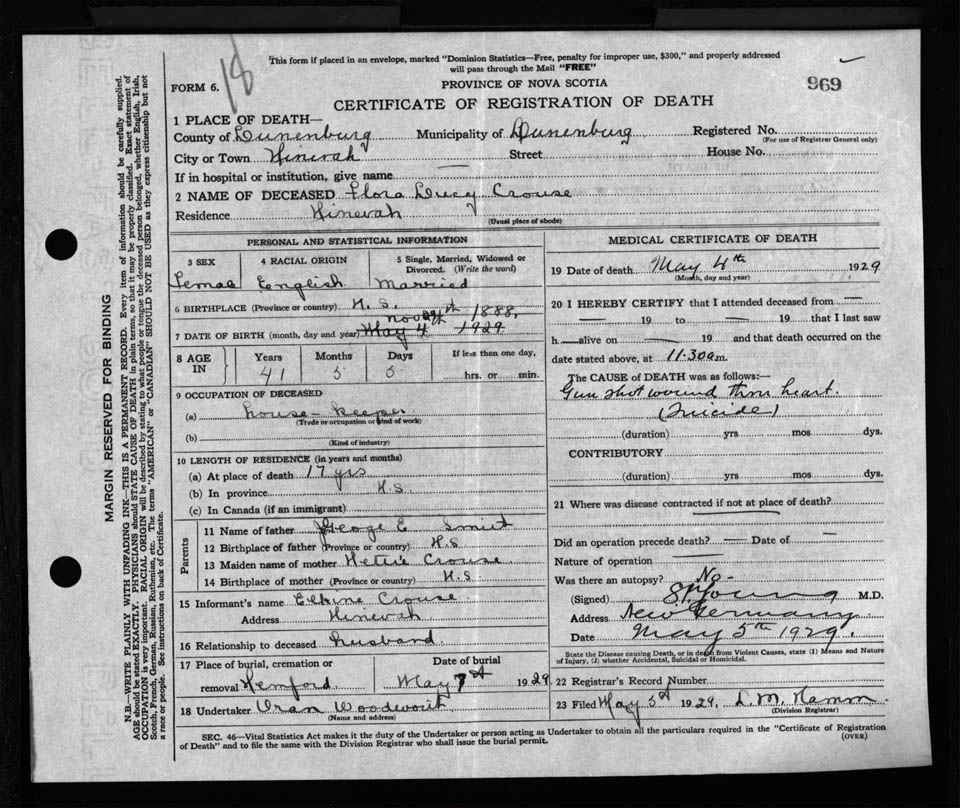 This form if placed in an envelope, marked "Dominion Statistics—Free, penalty for improper use, $300," and properly addressed
will pass through the Mail "FREE"
18
FORM 6.
PROVINCE OF NOVA SCOTIA
969
CERTIFICATE OF REGISTRATION OF DEATH
1 PLACE OF DEATH—
County of Lunenburg Municipality of Lunenburg Registered No.
(For use of Registrar General only)
City or Town Hinevah Street House No.
If in hospital or institution, give name —
2 NAME OF DECEASED Flora Lucy Crouse
Residence Hinevah
(Usual place of abode)
PERSONAL AND STATISTICAL INFORMATION
3 SEX 4 RACIAL ORIGIN 5 Single, Married, Widowed or Divorced. (Write the word)
Female English Married
6 BIRTHPLACE (Province or country) N. S.
Nov 29th 1888,
7 DATE OF BIRTH (month, day and year) May 4 1929
8 AGE IN Years Months Days If less than one day,
41 5 5 hrs. or min.
9 OCCUPATION OF DECEASED
(a) house-keeper
(Trade or occupation or kind of work)
(b)
(Kind of industry)
10 LENGTH OF RESIDENCE (in years and months)
(a) At place of death 17 yrs
(b) In province N.S.
(c) In Canada (if an immigrant)
Parents
11 Name of father George E
12 Birthplace of father (Province or country) N.S
13 Maiden name of mother Hettie Crouse
14 Birthplace of mother (Province or country) N.S
15 Informant's name Crouse
Address Hinevah
16 Relationship to deceased husband.
17 Place of burial, cremation or Date of burial
removal Hemford May 7 1929
18 Undertaker Oran
(Name and address)
MEDICAL CERTIFICATE OF DEATH
19 Date of death May 4th 1929
(Month, day and year)
20 I HEREBY CERTIFY that I attended deceased from —
— 19 to — 19 that I last saw
h — alive on — 19 and that death occurred on the
date stated above, at 11.30am.
The CAUSE of DEATH was as follows:—
Gun shot wound thru heart.
(Suicide)
(duration) yrs mos dys.
CONTRIBUTORY
(duration) yrs mos dys.
21 Where was disease contracted if not at place of death?
Did an operation precede death? — Date of —
Nature of operation
Was there an autopsy? No -
(Signed) Young M.D.
Address New Germany
Date May 5th 1929.
State the Disease causing Death, or in death from Violent Causes, state (1) Means and Nature
of Injury, (2) whether Accidental, Suicidal or Homicidal.
22 Registrar's Record Number
23 Filed May 5 1929, L. M.
(Division Registrar)
SEC. 46—Vital Statistics Act makes it the duty of the Undertaker or person acting as Undertaker to obtain all the particulars required in the "Certificate of Registration
of Death" and to file the same with the Division Registrar who shall issue the burial permit.
(OVER)
MARGIN RESERVED FOR BINDING
N.B.—WRITE PLAINLY WITH UNFADING INK—THIS IS A PERMANENT RECORD. Every item of information should be carefully supplied.
AGE should be stated EXACTLY. PHYSICIANS should STATE CAUSE OF DEATH in plain terms, so that it may be properly classified. Exact statement of
OCCUPATION is very important. RACIAL ORIGIN will be described by stating to what people or tongue the deceased person belonged, whether English, Irish,
Scotch, French, German, Russian, Ruthenian, etc. The terms "AMERICAN" or "CANADIAN" SHOULD NOT BE USED as they express citizenship but not
a race or people. See instructions on back of Certificate.